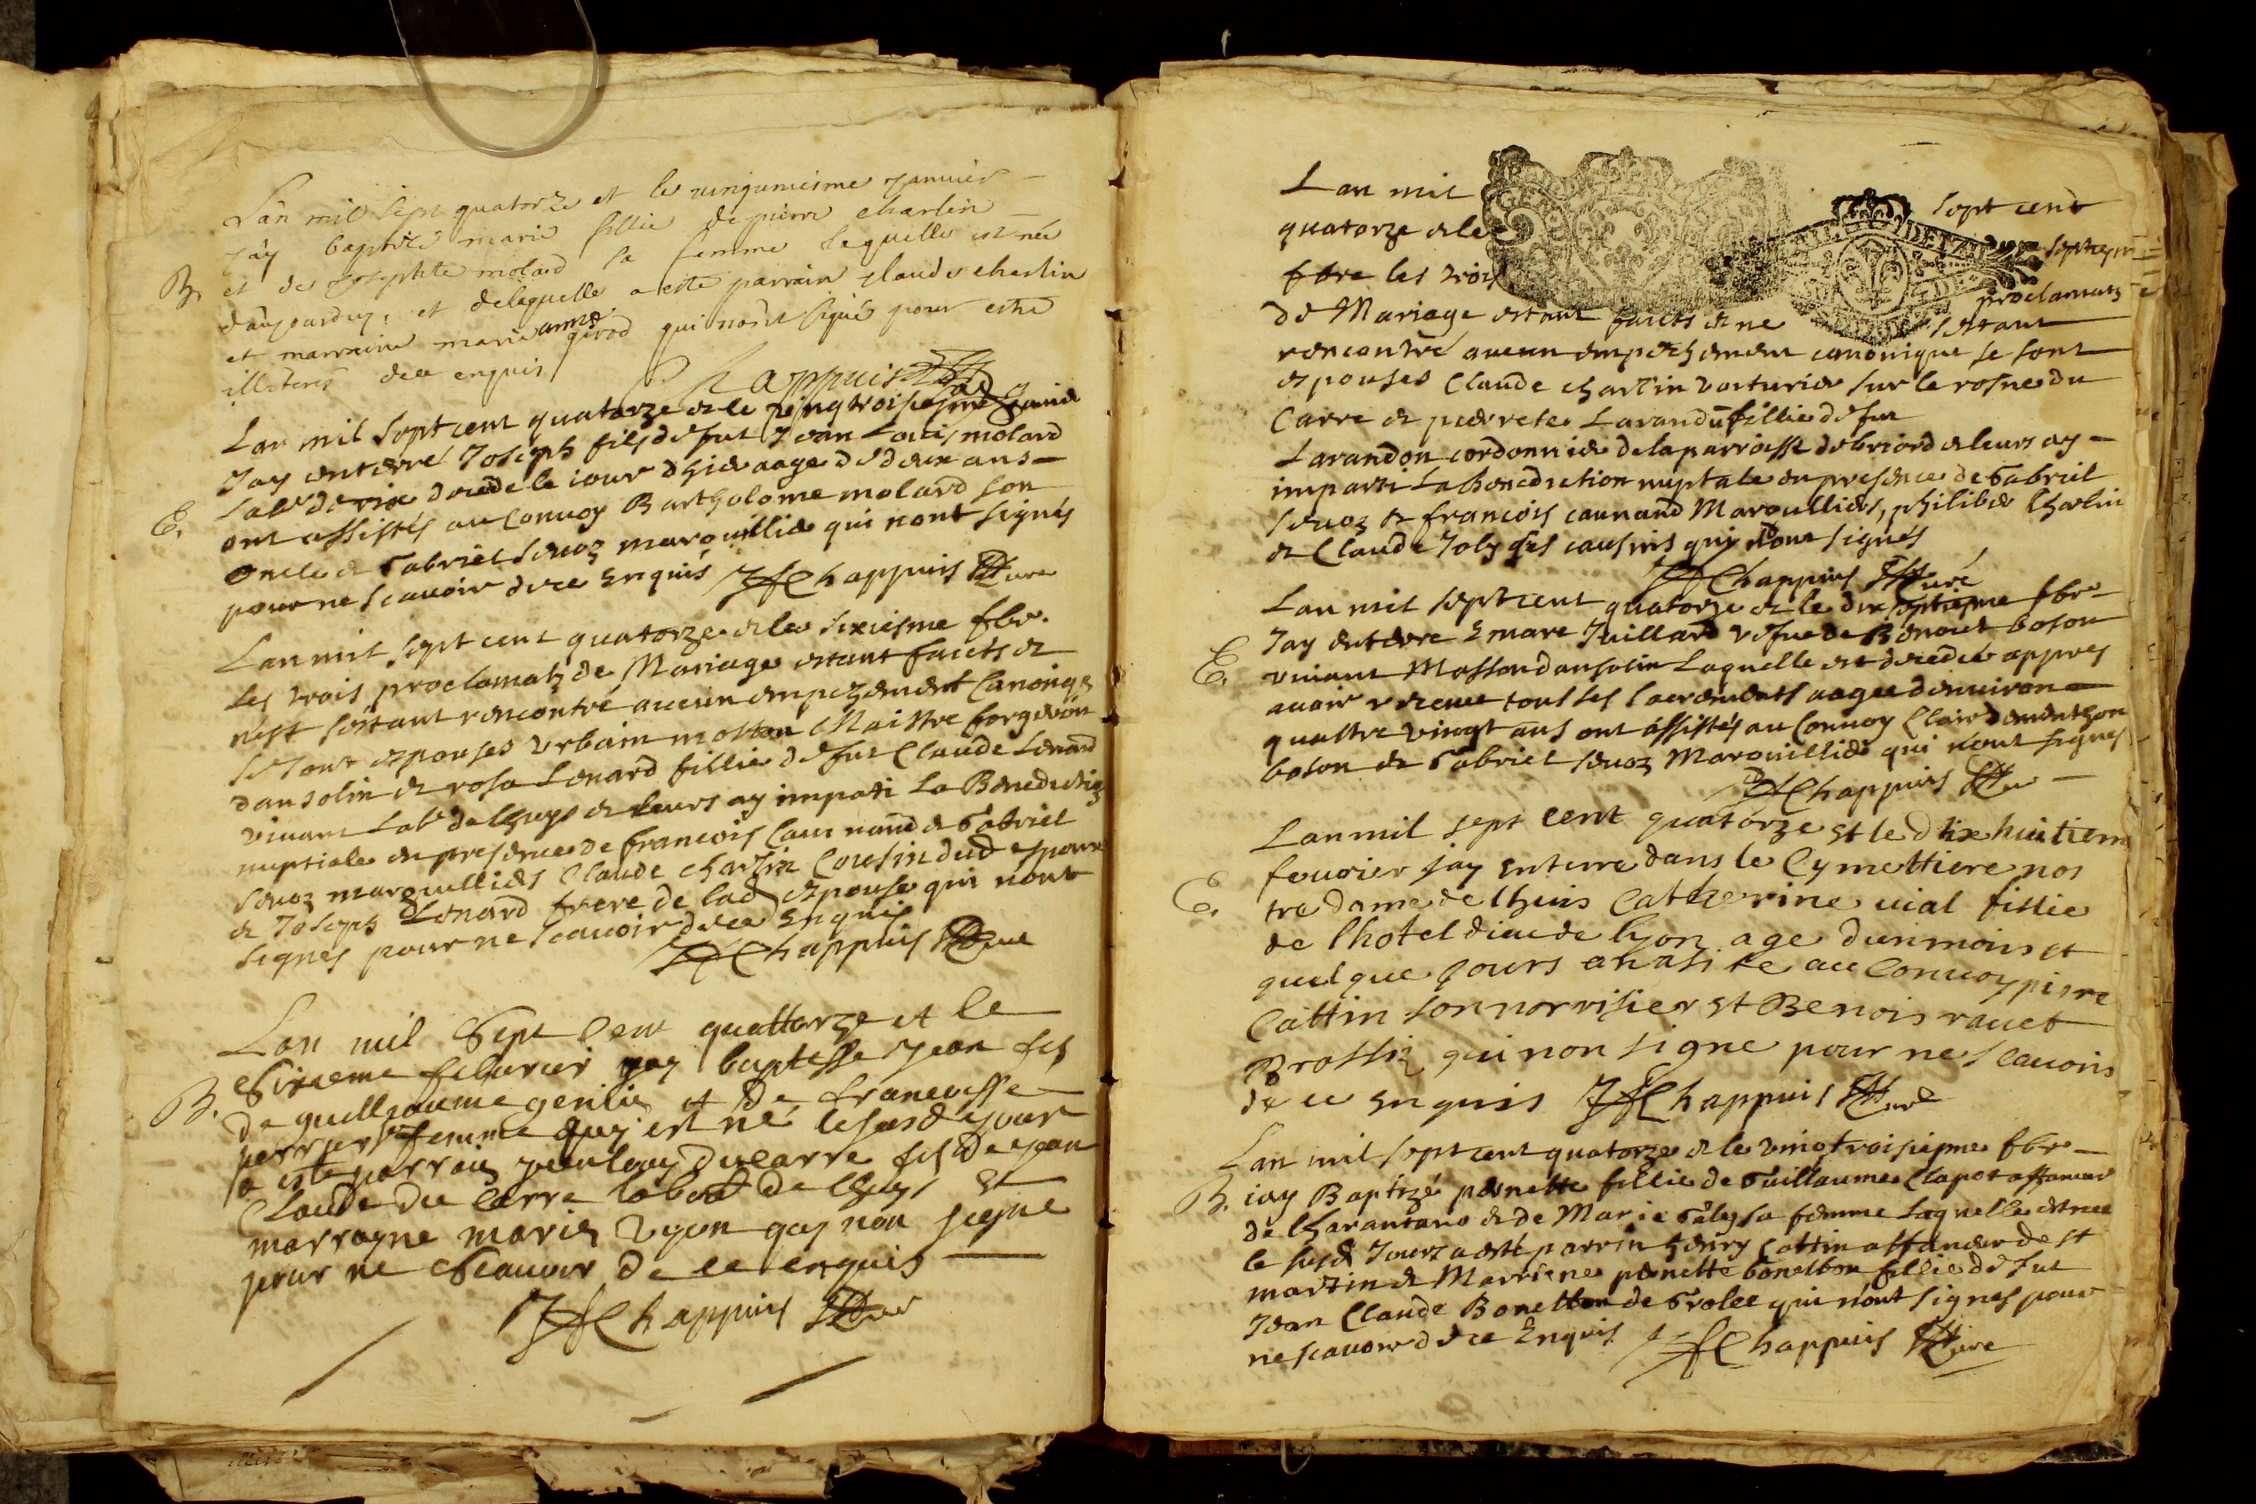 Lan mil sept quatorze et le vingunieme janvier
jay baptisé marie fillie de pierre charlin
B. et de Josephte molard sa femme laquelle est née
daujourduy, et delaquelle a esté parrain claude charlin
et marraine marie anne girod qui nont signé pour estre
illiterés de ce enquis
Chappuis
Lan mil sept cent quatorze et le vingtroisiesme Janvie
Jay enterré Joseph fils de fut Jean Louis molard
E. Labr de rix decede le iour dhier aage de deux ans
ont assistés au Convoy Bartholome molard son
oncle et Gabriel sevoz marguillie qui nont signés
pour ne scavoir de ce Enquis JfChappuis Cure
Lan mil sept cent quatorze et le sixiesme fbr.
les trois proclamatz de Mariage estant faicts et
nest sestant rencontré aucun empechement Canoniqz
se sont espouses Urbain Maistre forgeron
dansolin et rose Lonard fillie de fut Claude Lonard
vivant Labr de lhuys et leurs ay imparti La Benedictioz
nuptiale en presence de francois Caunand et Gabriel
sevoz marguillies Claude charlin Cousin dud espoux
et Joseph Lonard frere de lad espouse qui nont
signés pour ne scavoir de ce Enquis
JfChappuis Cure
Lan mil Sept Cent quattorze et le
Sixieme feburier jay baptesse jean fils
B. de guilliaume genin et de francoisse
perrier sa femme quy est né le susd jour
a esté parrain jean louy ducarre fils de jean
Claude du Carre labour de lhuys et
marrayne marie ugon quy non signe
pour ne Scauoir de ce enquis
JfChappuis Cure
Lan mil sept cent
quatorze et le dix septiem
fbre les trois proclamatz
de Mariage estant faicts et ne sestant
rencontré aucun empechement canonique se sont
espouses Claude charlin voiturie sur le rosne du
Carre et pierrete Larandon fillie de fut
Larandon cordonnier de la parroisse de briord et leurs ay
imparti La benediction nuptale en presence de Gabriel
sevoz et francois caunand Marguillies, philibe Charlin
et Claude Joly ses cousins qui nont signés
JfChappuis Curé
Lan mil sept cent quatorze et le dix septiesme fbr
E. Jay enterre Juillard vefue de Benoiet boson
vivant Masson dansolin Laquelle est decedée appres
avoir receue tous les sacrements aagee denviron
quattre vingt ans ont assistés au Convoy
boson et Gabriel sevoz Marguillie qui nont signés
JfChappuis Cu
Lan mil sept cent quatorze et le dix huitiem
fevrier jay enterre dans le Cymettiere nos
E. tre dame de lhuis Catherine vial fillie
de lhotel dieu de lyon age dun mois et
quelque jours a au Convoy piere
Cattin son norrisier et Benois ravet
Brossiz qui non signe pour ne scavoir
de ce enquis JfChappuis Curé
Lan mil sept cent quatorze et le vingtroisiesme fbr
B. iay Baptizé pernette fillie de Guillaume Clapot affaneur
de Charantano et de Marie Galy sa femme laquelle est nee
le susd Jour a esté parrin henry Cattin affaneur de st
martin et Marrine pernette bonetton fillie de fut
Jean Claude Bonetton de Grolee qui nont signés pour
ne scavoir de ce Enquis JfChappuis Cure